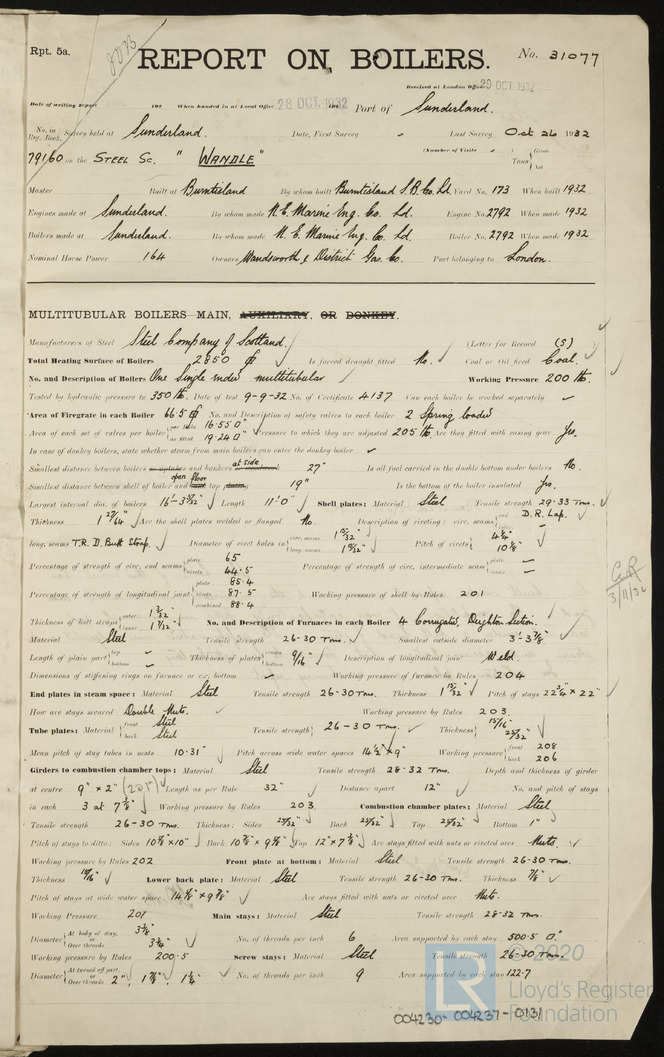 Rpt. 5a.
8083
REPORT ON BOILERS.
No. 31077
Received at London Office 29 OCT. 1932
Date of writing Report 192 When handed in at Local Office 28 OCT. 1932 Port of Sunderland.
No. in Reg. Book. Survey held at Sunderland. Date, First Survey Last Survey Oct 26 1932
79160 on the STEEL SC. "WANDLE" (Number of Visits ) Tons { Gross Net
Master Built at Burntisland By whom built Burntisland S.B. Co. Ld. Yard No. 173 When built 1932
Engines made at Sunderland. By whom made N.E. Marine Eng. Co. Ld. Engine No. 2792 When made 1932
Boilers made at Sunderland. By whom made N.E. Marine Eng. Co. Ld. Boiler No. 2792 When made 1932
Nominal Horse Power 164 Owners Wandsworth & District Gas. Co. Port belonging to London.
MULTITUBULAR BOILERS—MAIN, AUXILIARY, OR DONKEY.
Manufacturers of Steel Steel Company of Scotland (Letter for Record (S)
Total Heating Surface of Boilers 2850 Is forced draught fitted No. Coal or Oil fired Coal.
No. and Description of Boilers One Single Ended multitubular Working Pressure 200 lb.
Tested by hydraulic pressure to 350 lb. Date of test 9-9-32 No. of Certificate 4137 Can each boiler be worked separately
Area of Firegrate in each Boiler 66.5 No. and Description of safety valves to each boiler 2 Spring loaded
Area of each set of valves per boiler { per Rule 16.55 as fitted 19.24 Pressure to which they are adjusted 205 lb. Are they fitted with easing gear Yes.
In case of donkey boilers, state whether steam from main boilers can enter the donkey boiler
Smallest distance between boilers or uptakes and bunkers at side 27" Is oil fuel carried in the double bottom under boilers No.
Smallest distance between shell of boiler and tank top open floor 19" Is the bottom of the boiler insulated Yes.
Largest internal dia. of boilers Length 11'-0" Shell plates: Material Steel Tensile strength 29-33 Tons.
Thickness 1 27/64" Are the shell plates welded or flanged No. Description of riveting: circ. seams { end D.R. Lap.
long. seams T.R.D. Butt Strap. Diameter of rivet holes in { circ. seams 1 15/32 long. seams Pitch of rivets { 10 1/8"
Percentage of strength of circ. end seams { plate 65 rivets 44.5 Percentage of strength of circ. intermediate seam { plate rivets
Percentage of strength of longitudinal joint { plate 85.4 rivets 87.5 combined 88.4 Working pressure of shell by Rules 201
Thickness of butt straps { outer 1 3/32 inner 1 7/32 No. and Description of Furnaces in each Boiler 4 Corrugated, Deighton Section.
Material Steel Tensile strength 26-30 Tons. Smallest outside diameter 3'-3 7/8"
Length of plain part { top bottom Thickness of plates { crown bottom 9/16" Description of longitudinal joint Weld.
Dimensions of stiffening rings on furnace or c.c. bottom Working pressure of furnace by Rules 204
End plates in steam space: Material Steel Tensile strength 26-30 Tons. Thickness 1 15/32" Pitch of stays 22 3/4" x 22"
How are stays secured Double Nuts. Working pressure by Rules 203.
Tube plates: Material { front Steel back Steel Tensile strength { 26-30 Tons. Thickness { 15/16" 25/32"
Mean pitch of stay tubes in nests 10.31" Pitch across wide water spaces 14 1/2" x 9" Working pressure { front 208 back 206
Girders to combustion chamber tops: Material Steel Tensile strength 28-32 Tons. Depth and thickness of girder
at centre 9" x 2" Length as per Rule 32" Distance apart 12" No. and pitch of stays
in each 3 at 7 7/8" Working pressure by Rules 203 Combustion chamber plates: Material Steel
Tensile strength 26-30 Tons. Thickness: Sides 23/32" Back 23/32" Top 23/32" Bottom 1"
Pitch of stays to ditto: Sides 10 7/8" x 10" Back 10 7/8" x 9 7/8" Top 12" x 7 7/8" Are stays fitted with nuts or riveted over Nuts.
Working pressure by Rules 202 Front plate at bottom: Material Steel Tensile strength 26-30 Tons.
Thickness 15/16" Lower back plate: Material Steel Tensile strength 26-30 Tons. Thickness 7/8"
Pitch of stays at wide water space Are stays fitted with nuts or riveted over Nuts.
Working Pressure 201 Main stays: Material Steel Tensile strength 28-32 Tons.
Diameter { At body of stay, 3 3/8" or Over threads 3 3/4" No. of threads per inch 6 Area supported by each stay 500.5
Working pressure by Rules 200.5 Screw stays: Material Steel Tensile strength 26-30 Tons.
Diameter { At turned off part, or Over threads 2", 1 7/8", 1 3/4" No. of threads per inch 9 Area supported by each stay 122.7
3/11/32
© 2020
LR
Lloyd's Register
Foundation
004230-004237-0131